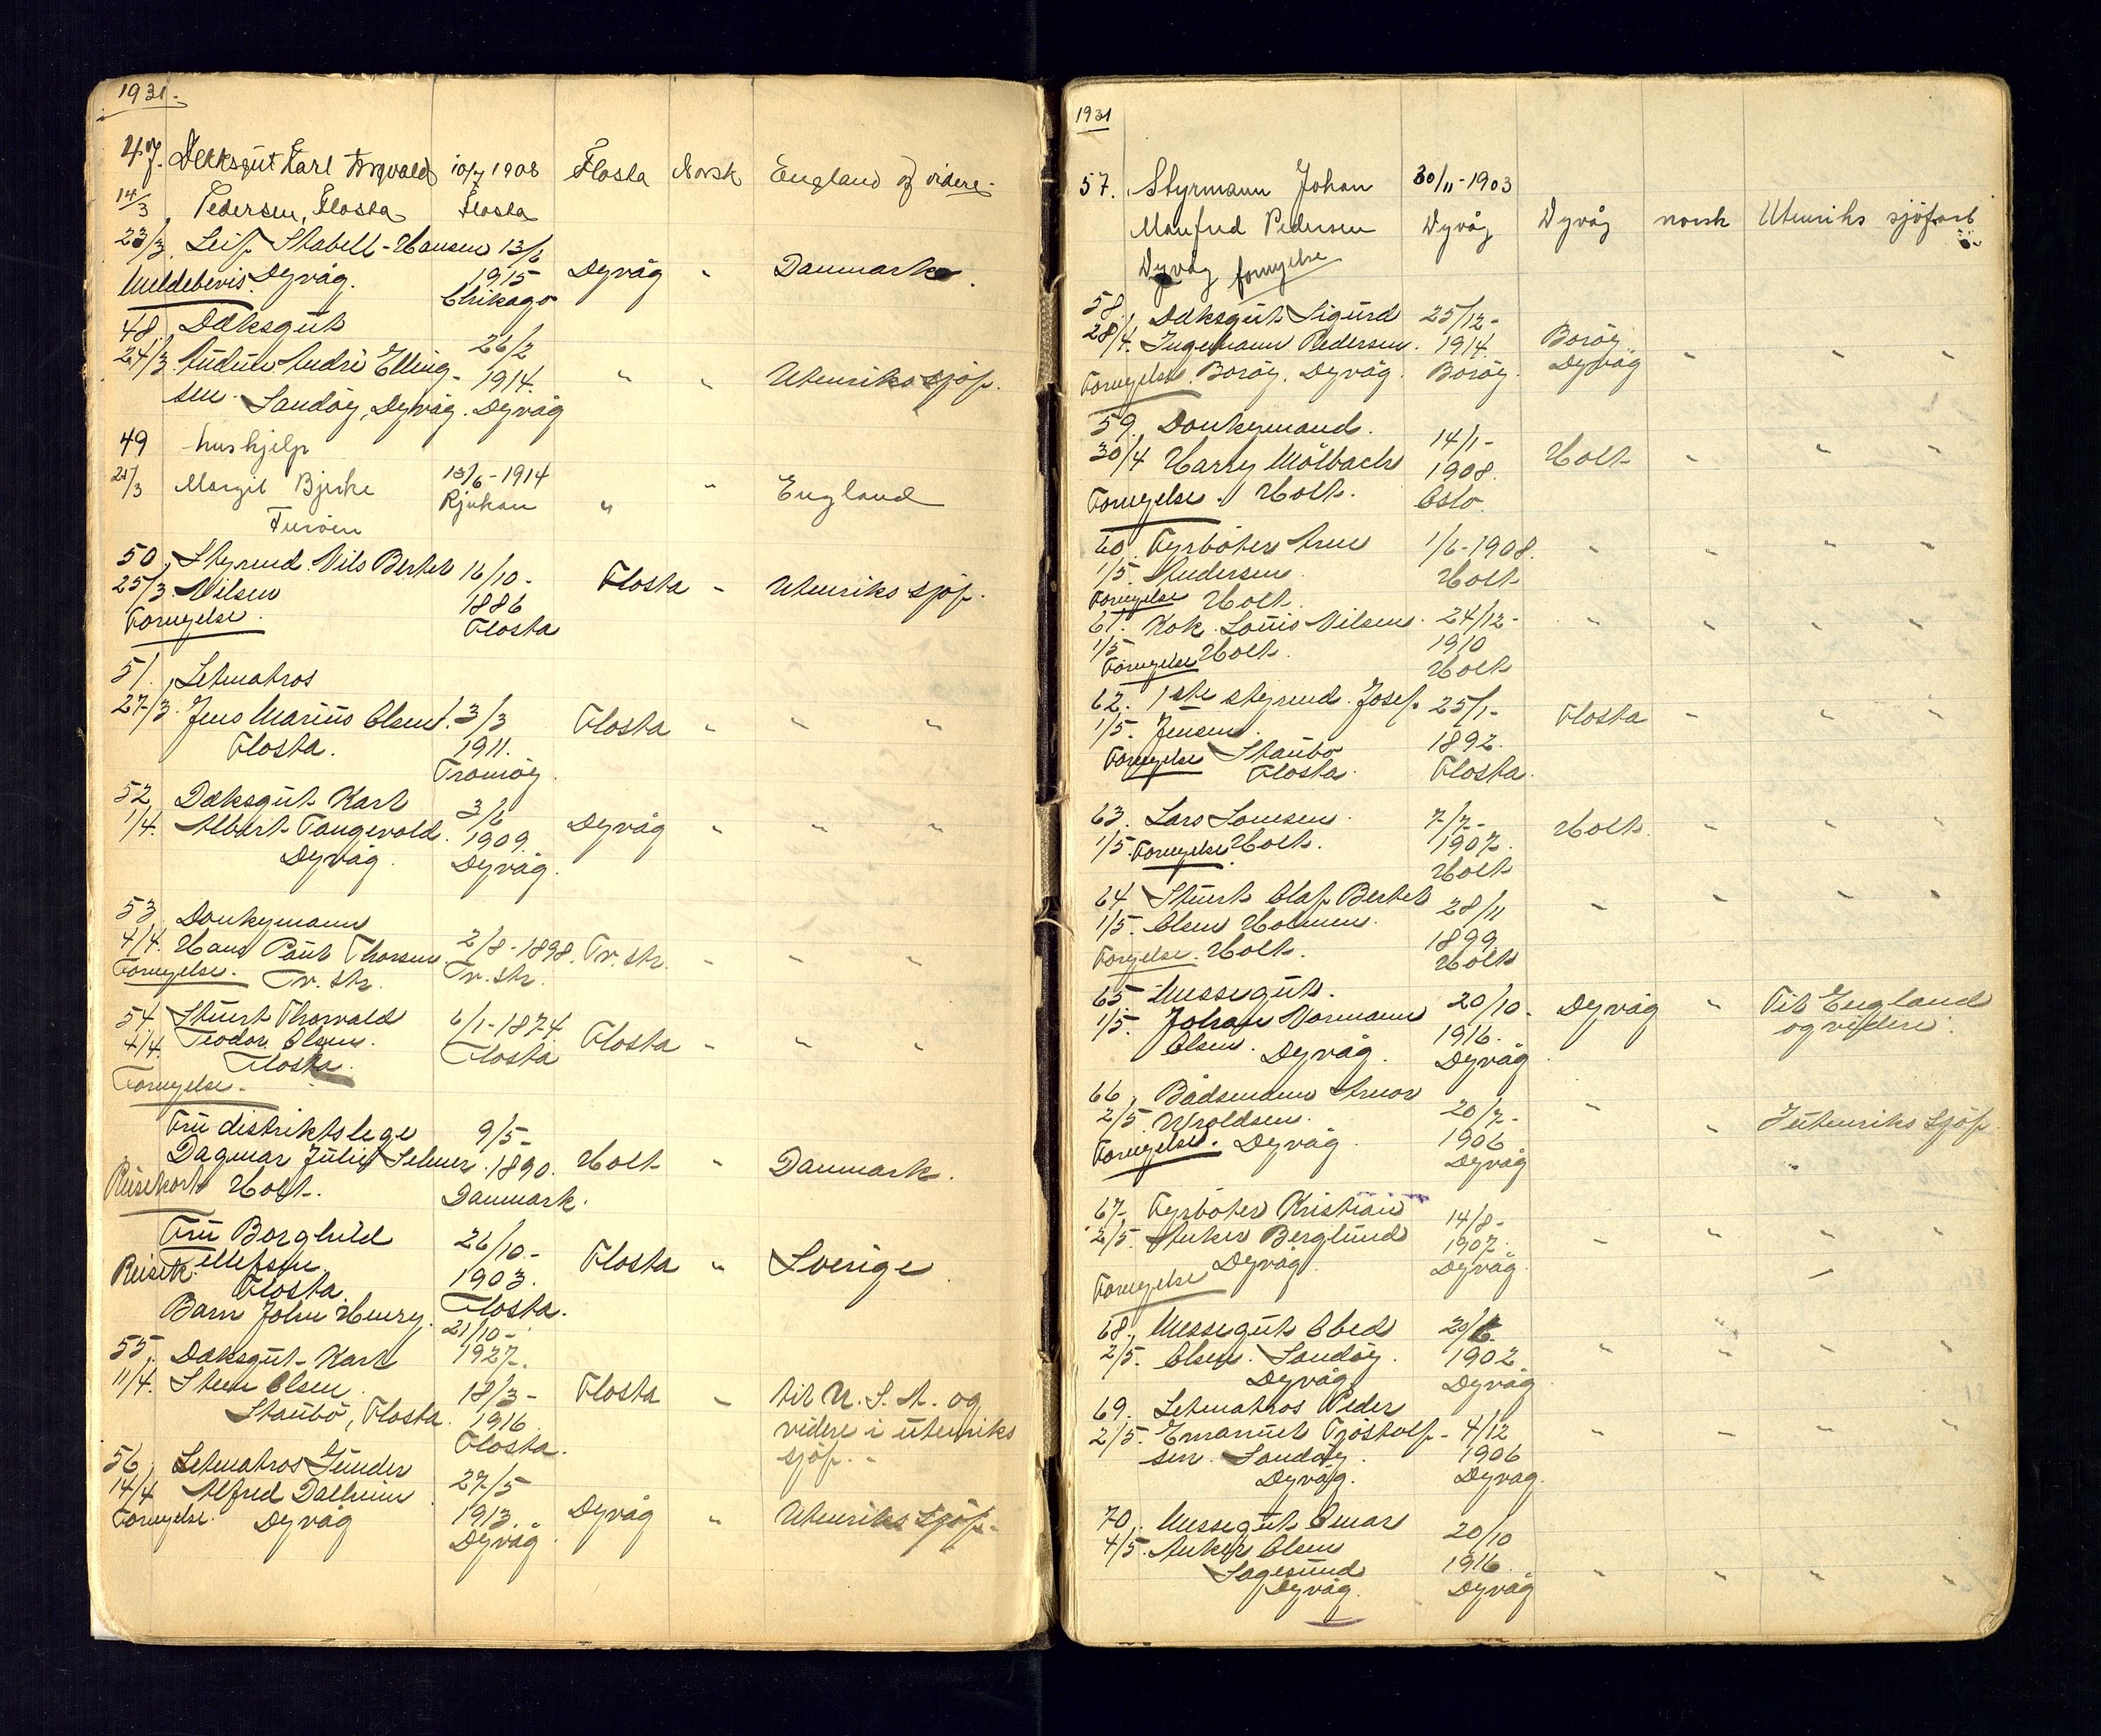 1931.
47. Dekksgut Karl Torvald 10/7 1908 Flosta Norsk England og videre.
14/3 Pedersen, Flosta Flosta
23/3. Leif Stabell-Hansen 13/6
Meldebevis. Dyvåg. 1915 Dyvåg " Danmark.
Chikago
48. Dæksgut
24/3 André Elling- 26/2 1914. " " Utenriks sjöf.
sen. Sandøy, Dyvåg. Dyvåg
49 hushjelp
25/3 Margit Bjerke 13/6-1914 " " England
Furöen Rjukan
50, Styrmd. Nils Bertel 16/10-
25/3. Nilsen 1886 Flosta " Utenriks sjöf.
Fornyelse. Flosta
51. Letmatros
27/3. Jens Marius Olsen. 3/3 Flosta " " "
Flosta. 1911.
Tromöy.
52, Dæksgut Karl 3/6
1/4. Albert Tangevald. 1909. Dyvåg " " "
Dyvåg. Dyvåg.
53. Donkymann
4/4. Hans Paul Thorsen. 2/8-1898. Tv. str. " " "
Fornyelse. Tv. str. Tv. str.
54. Stuert Thorvald 6/1-1874 Flosta " " "
4/4. Teodor Olsen. Flosta
Flosta.
Fornyelse.
Fru distriktslege 9/5-
Dagmar Julie Selmer. 1890. Holt " Danmark.
Reisekort Holt. Danmark.
Fru Borghild 26/10-
Ellefsen 1903. Flosta " Sverige
Reisek. Flosta. Flosta.
Barn John Henry. 21/10-
1927.
55, Dæksgut Karl
11/4. Steen Olsen 18/3- Flosta " til U. S. A. og
Staubö, Flosta. 1916 videre i utenriks
Flosta. sjöf.
56, Letmatros Gunder 27/5
14/4 Alfred Dalheim 1913. Dyvåg " Utenriks Sjöf.
Fornyelse. Dyvåg Dyvåg.
1931
57. Styrmann Johan 30/11-1903
Manfred Pedersen Dyvåg Dyvåg norsk Utenriks sjöfart
Dyvåg fornyelse
58. Dæksgut Sigurd 25/12-
28/4. Ingemann Pedersen. 1914. Boröy. " " "
Fornyelse. Boröy. Dyvåg. Boröy. Dyvåg
59. Donkymand. 14/1-
30/4 Harry Mölback 1908. Holt " " "
Fornyelse. Holt. Oslo.
60. Fyrböter Arne 1/6-1908. " " " "
1/5. Andersen. Holt
Fornyelse Holt.
61. Kok. Louis Nilsen. 24/12- " " " "
1/5 1910
Fornyelse Holt. Holt
62. 1ste styrmd. Josef 25/1- Flosta " " "
1/5. Jensen. 1892.
Fornyelse Staubö Flosta. Flosta.
63. Lars Larsen. 7/7- Holt. " " "
1/5. Fornyelse Holt. 1907.
Holt
64 Stuert Olaf Bertel 28/11 " " " "
1/5. Olsen Holmen. 1899
Fornyelse. Holt. Holt
65 Messegut. 20/10. Dyvåg " Til England
1/5. Johan Normann 1916. og videre.
Olsen. Dyvåg. Dyvåg.
66, Bådsmann Arnor 20/7- " " I utenriks sjöf.
2/5. Uroldsen. 1906
Fornyelse. Dyvåg. Dyvåg "
67- Fyrböter Kristian 14/8- " " " "
2/5. Anker Berglund 1907.
Dyvåg. Dyvåg.
Fornyelse
68. Messegut Obed 20/6 " " " "
2/5. Olsen. Sandøy. 1902
Dyvåg. Dyvåg
69. Letmatros Peder
2/5. Emanuel Tjöstolf- 4/12 " " " "
sen. Sandøy. 1906
Dyvåg. Dyvåg.
70, Messegut Omar 20/10
4/5. Anker Olsen 1916. " " " "
Sagesund Dyvåg
Dyvåg.